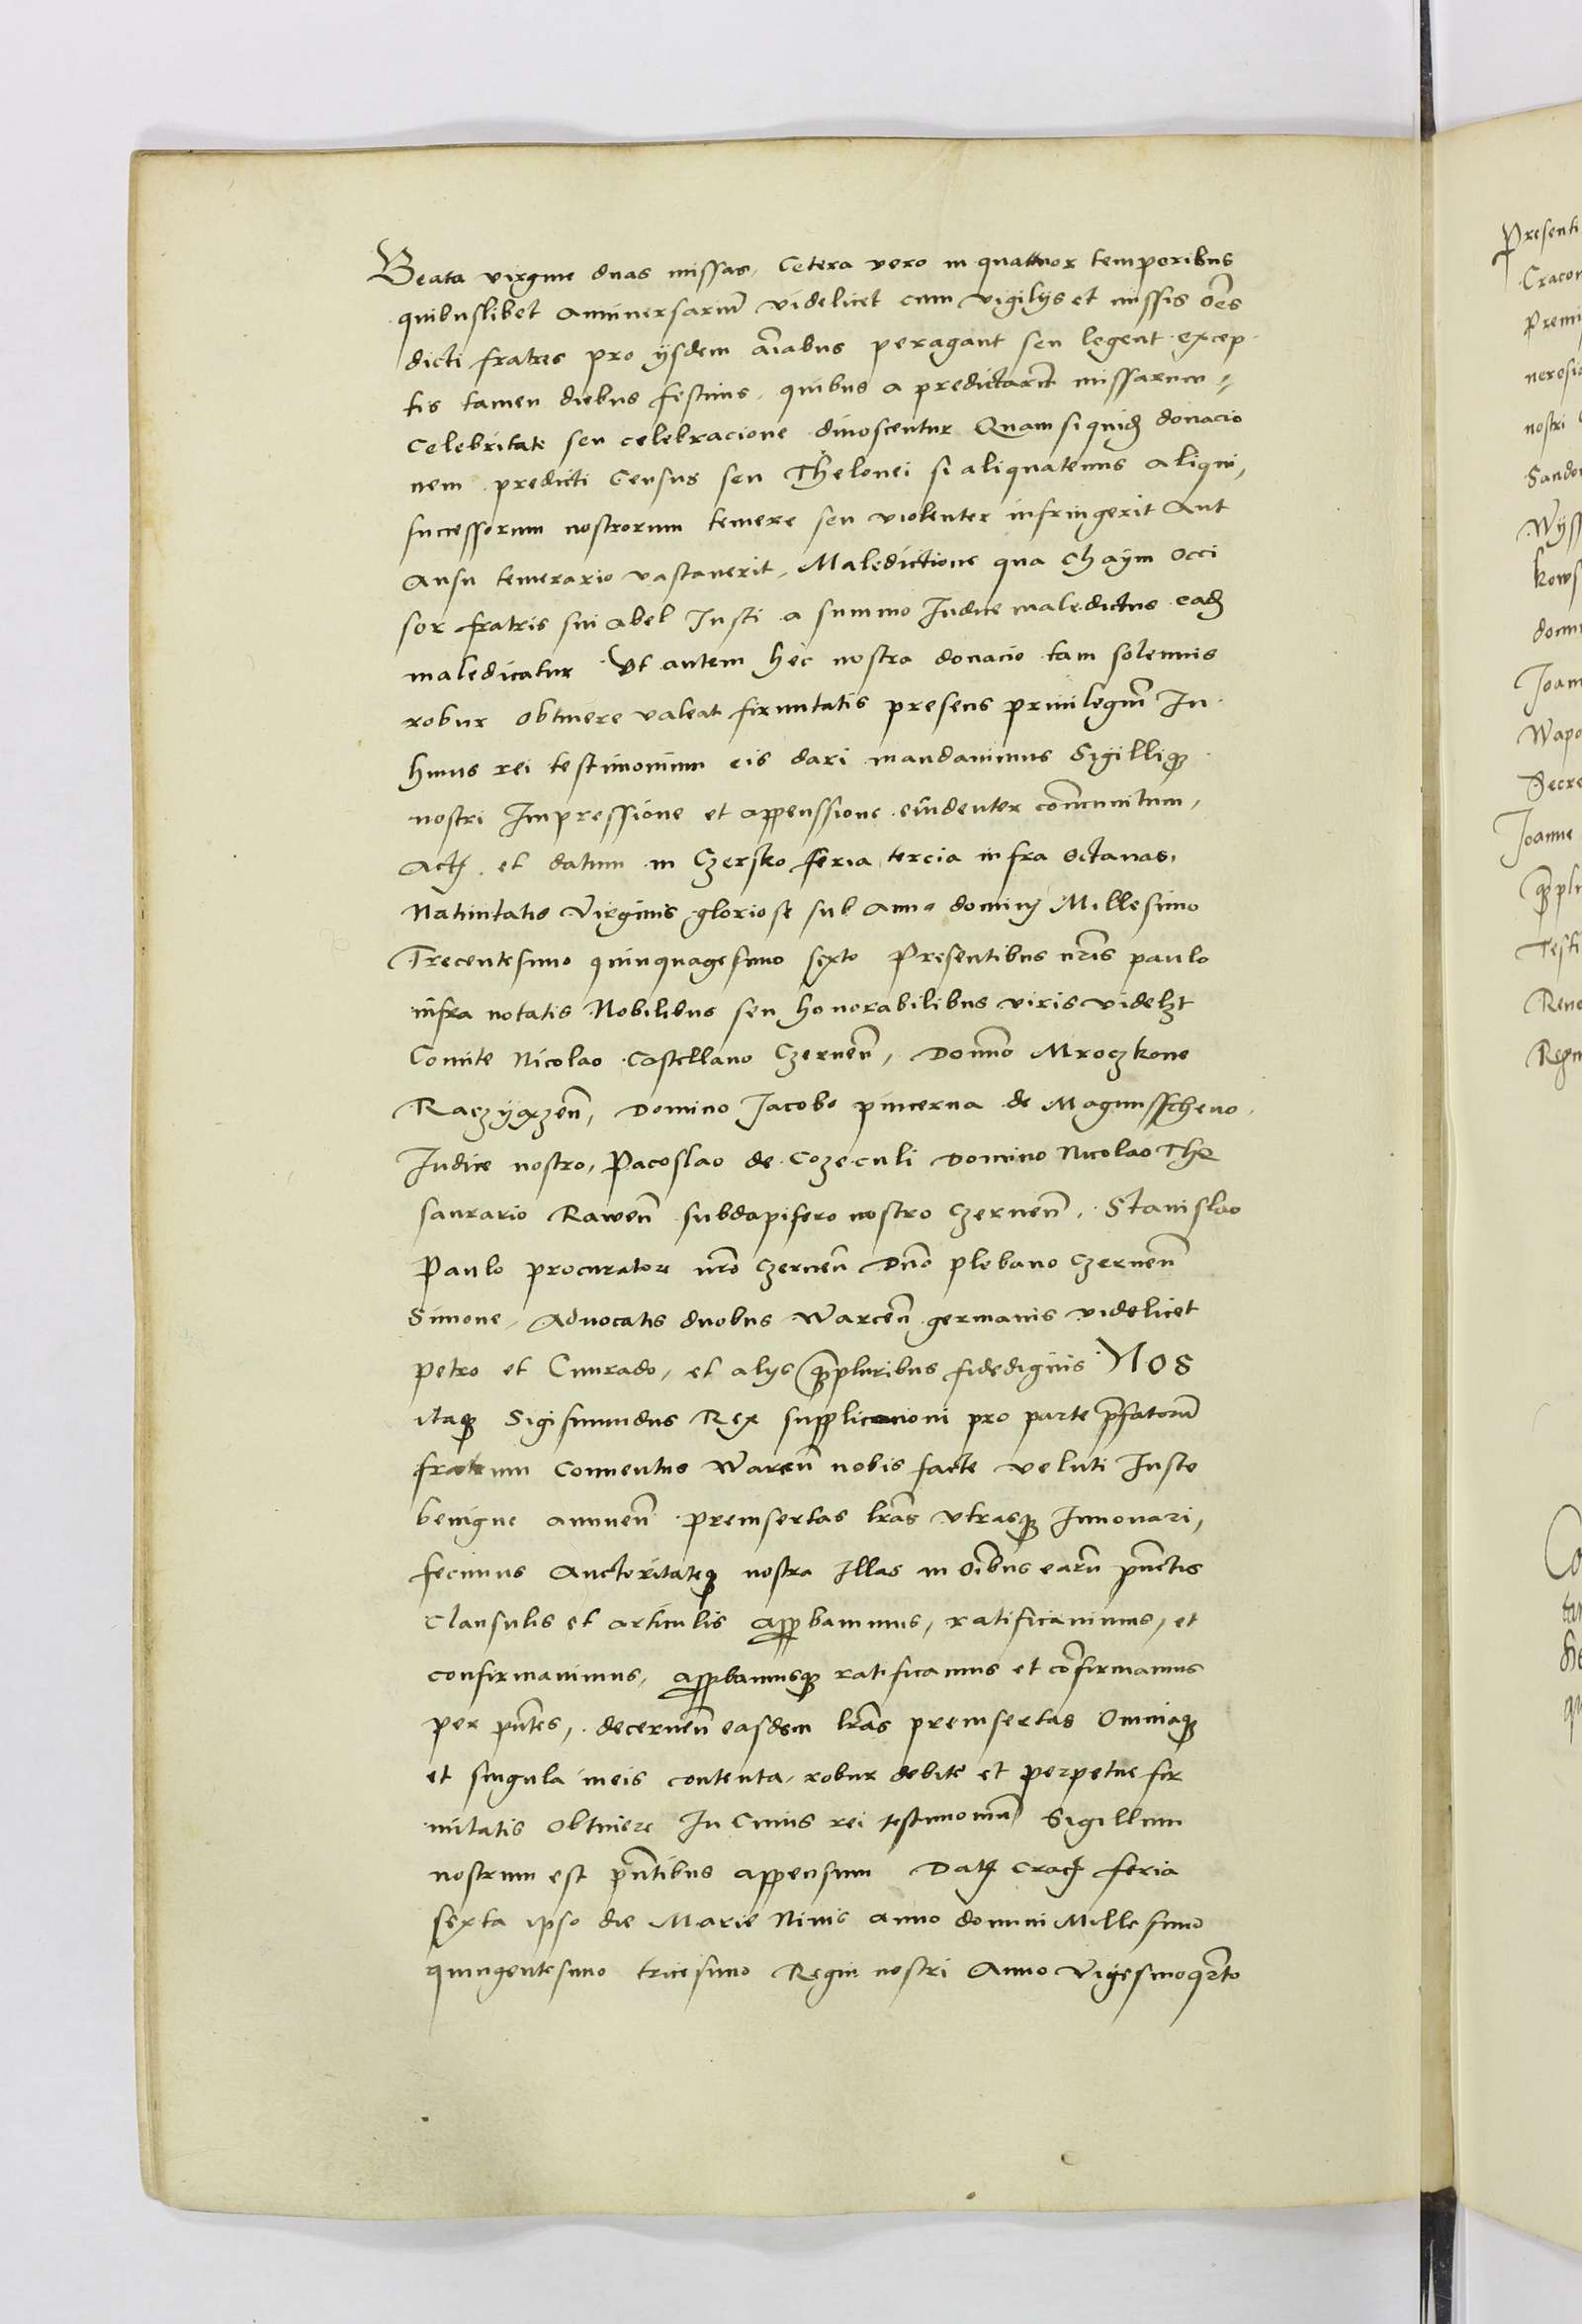 Beata virgine duas missas, Cetera vero in quattuor temporibus
quibuslibet anniversariũ videlicet cum vigilijs et missis oẽs
dicti fratres pro ijsdem aĩabus peragant seu legent excep
tis tamen diebus festivis, quibus a predictarũ missarum
Celebritate seu celebracione dinoscentur Quam siquidẽ donacio
nem predicti Census seu Thelonei si aliquatenus aliqui,
successorum nostrorum temere seu violenter infringerit Aut
Ausu temerario vastaverit, Maledictione qua Chaym occi
sor fratris sui Abel Justi a summo Judice maledictus eadẽ
maledicatur Ut autem hec nostra donacio tam solennis
robur obtinere valeat firmitatis presens privilegiũ In
huius rei testimonium eis dari mandavimus Sigilliqȝ
nostri Impressione et appenssione evidenter cõmunitum,
Actȝ et datum in Czersko feria tercia infra octavas,
Nativitatis Virginis gloriose sub Anno dominj Millesimo
Trecentesimo quinquagesimo sexto Presentibus nr̃is paulo
infra notatis Nobilibus seu honorabilibus viris videlȝt
Comite Nicolao Castellano Czernen̄, Domno Mroczkone
Raczyązen̄, Domino Jacobo pincerna de Magnusscheno
Judice nostro, Pacoslao de Cozeculi Domino Nicolao The
saurario Rawen̄ subdapifero nostro Czernen̄, Stanislao
Paulo procuratore nr̃o Czernen̄ Dño plebano Czernen̄
Simone, Advocatis duobus Warcen̄ germanis videlicet
Petro et Cunrado, et alijs qͣpluribus fidedignis Nos
itaqȝ Sigismundus Rex supplicacioni pro parte p̃fatorũ
fratrum Conventus Warcen̄ nobis facte veluti Juste
benigne annuen̄ preinsertas l̃ras utrasqȝ Innovari,
fecimus Auctoritateqȝ nostra Illas in oĩbus earũ pũctis
Clausulis et articulis approbavimus, ratificavimus, et
confirmavimus, approbamusqȝ ratificamus et cõfirmamus
per p̃ntes, decernen̄ easdem l̃ras preinsertas Omniaqȝ
et singula in eis contenta, robur debite et perpetue fir
mitatis obtinere In Cuius rei testimoniũ Sigillum
nostrum est p̃ntibus appensum Datȝ Cracȝ feria
sexta ipso die Marie Nivis anno domini Millesimo
quingentesimo tricesimo Regni nostri Anno Vigesimoq̃rto
Presenti
Cracov
Premi
nerosi
nostri
Sando
Wyss
kows
domi
Joan
Wapo
Secre
Joanne
qͣplu
Testi
Reve
Regni